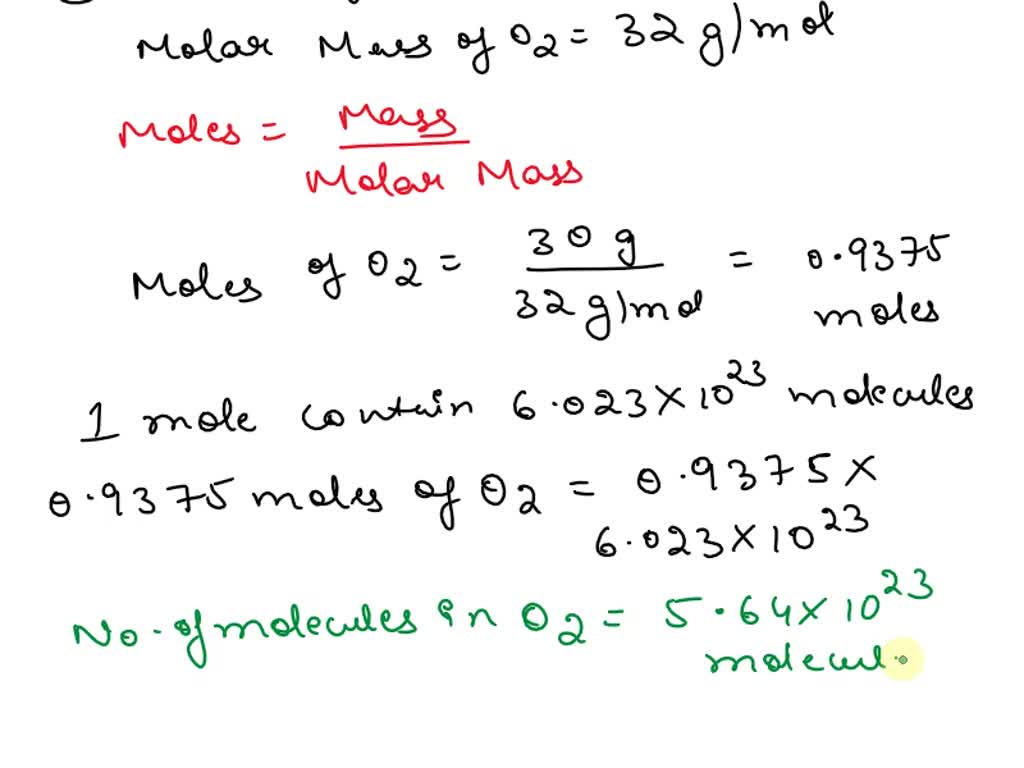 Molar Mass of O2 = 32 g/mol
Moles = Mass / Molar Mass
Moles of O2 = 30 g / 32 g/mol = 0.9375 moles
1 mole contain 6.023 × 10^23 molecules
0.9375 moles of O2 = 0.9375 ×
6.023 × 10^23
No. of molecules in O2 = 5.64 × 10^23
molecul